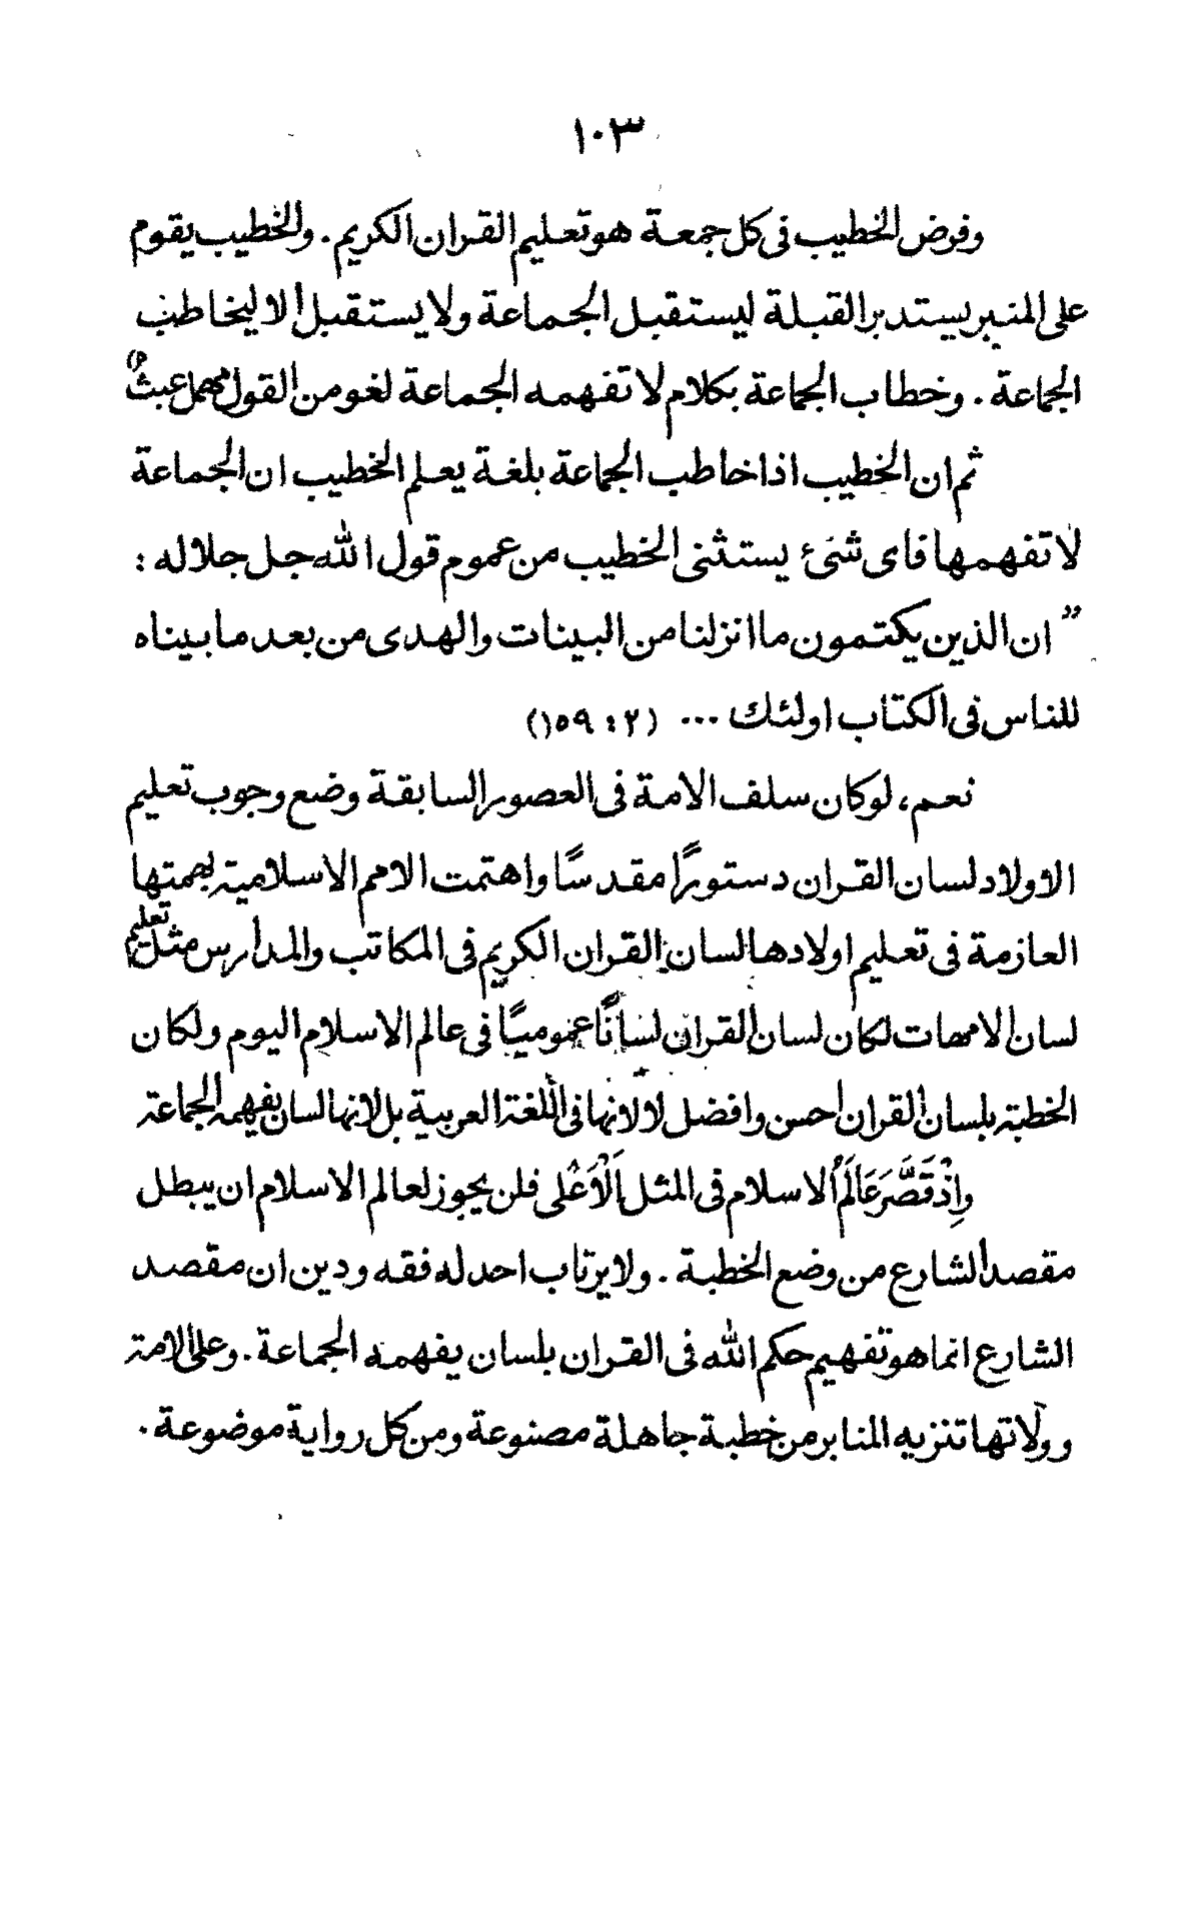 ١٠٣
وفرض الخطيب فى كل جمعة هو تعليم القران الكريم. والخطيب يقوم
على المنبر يستدبر القبلة ليستقبل الجماعة ولا يستقبل الا ليخاطب
الجماعة. وخطاب الجماعة بكلام لا تفهمه الجماعة لغو من القول مهمل عبثٌ
ثم ان الخطيب اذا خاطب الجماعة بلغة يعلم الخطيب ان الجماعة
لا تفهمها فاى شئ يستثنى الخطيب من عموم قول الله جل جلاله :
” ان الذين يكتمون ما انزلنا من البينات والهدى من بعد ما بيناه
للناس فى الكتاب اولئك ... (٢ : ١٥٩)
نعم، لو كان سلف الامة فى العصور السابقة وضع وجوب تعليم
الاولاد لسان القران دستورًا مقدسًا واهتمت الامم الاسلامية بهمتها
العازمة فى تعليم اولادها لسان القران الكريم فى المكاتب والمدارس مثل تعليم
لسان الامهات لكان لسان القران لسانًا عموميًا فى عالم الاسلام اليوم ولكان
الخطبة بلسان القران احسن وافضل لا لانها فى اللغة العربية بل لانها لسان يفهمه الجماعة
وَاِذْ قَصَّرَ عَالَمُ الاسلام فى المثل اَلْاَعْلى فلن يجوز لعالم الاسلام ان يبطل
مقصد الشارع من وضع الخطبة. ولا يرتاب احد له فقه ودين ان مقصد
الشارع انما هو تفهيم حكم الله فى القران بلسان يفهمه الجماعة. وعلى الامة
وولاتها تنزيه المنابر من خطبة جاهلة مصنوعة ومن كل رواية موضوعة.